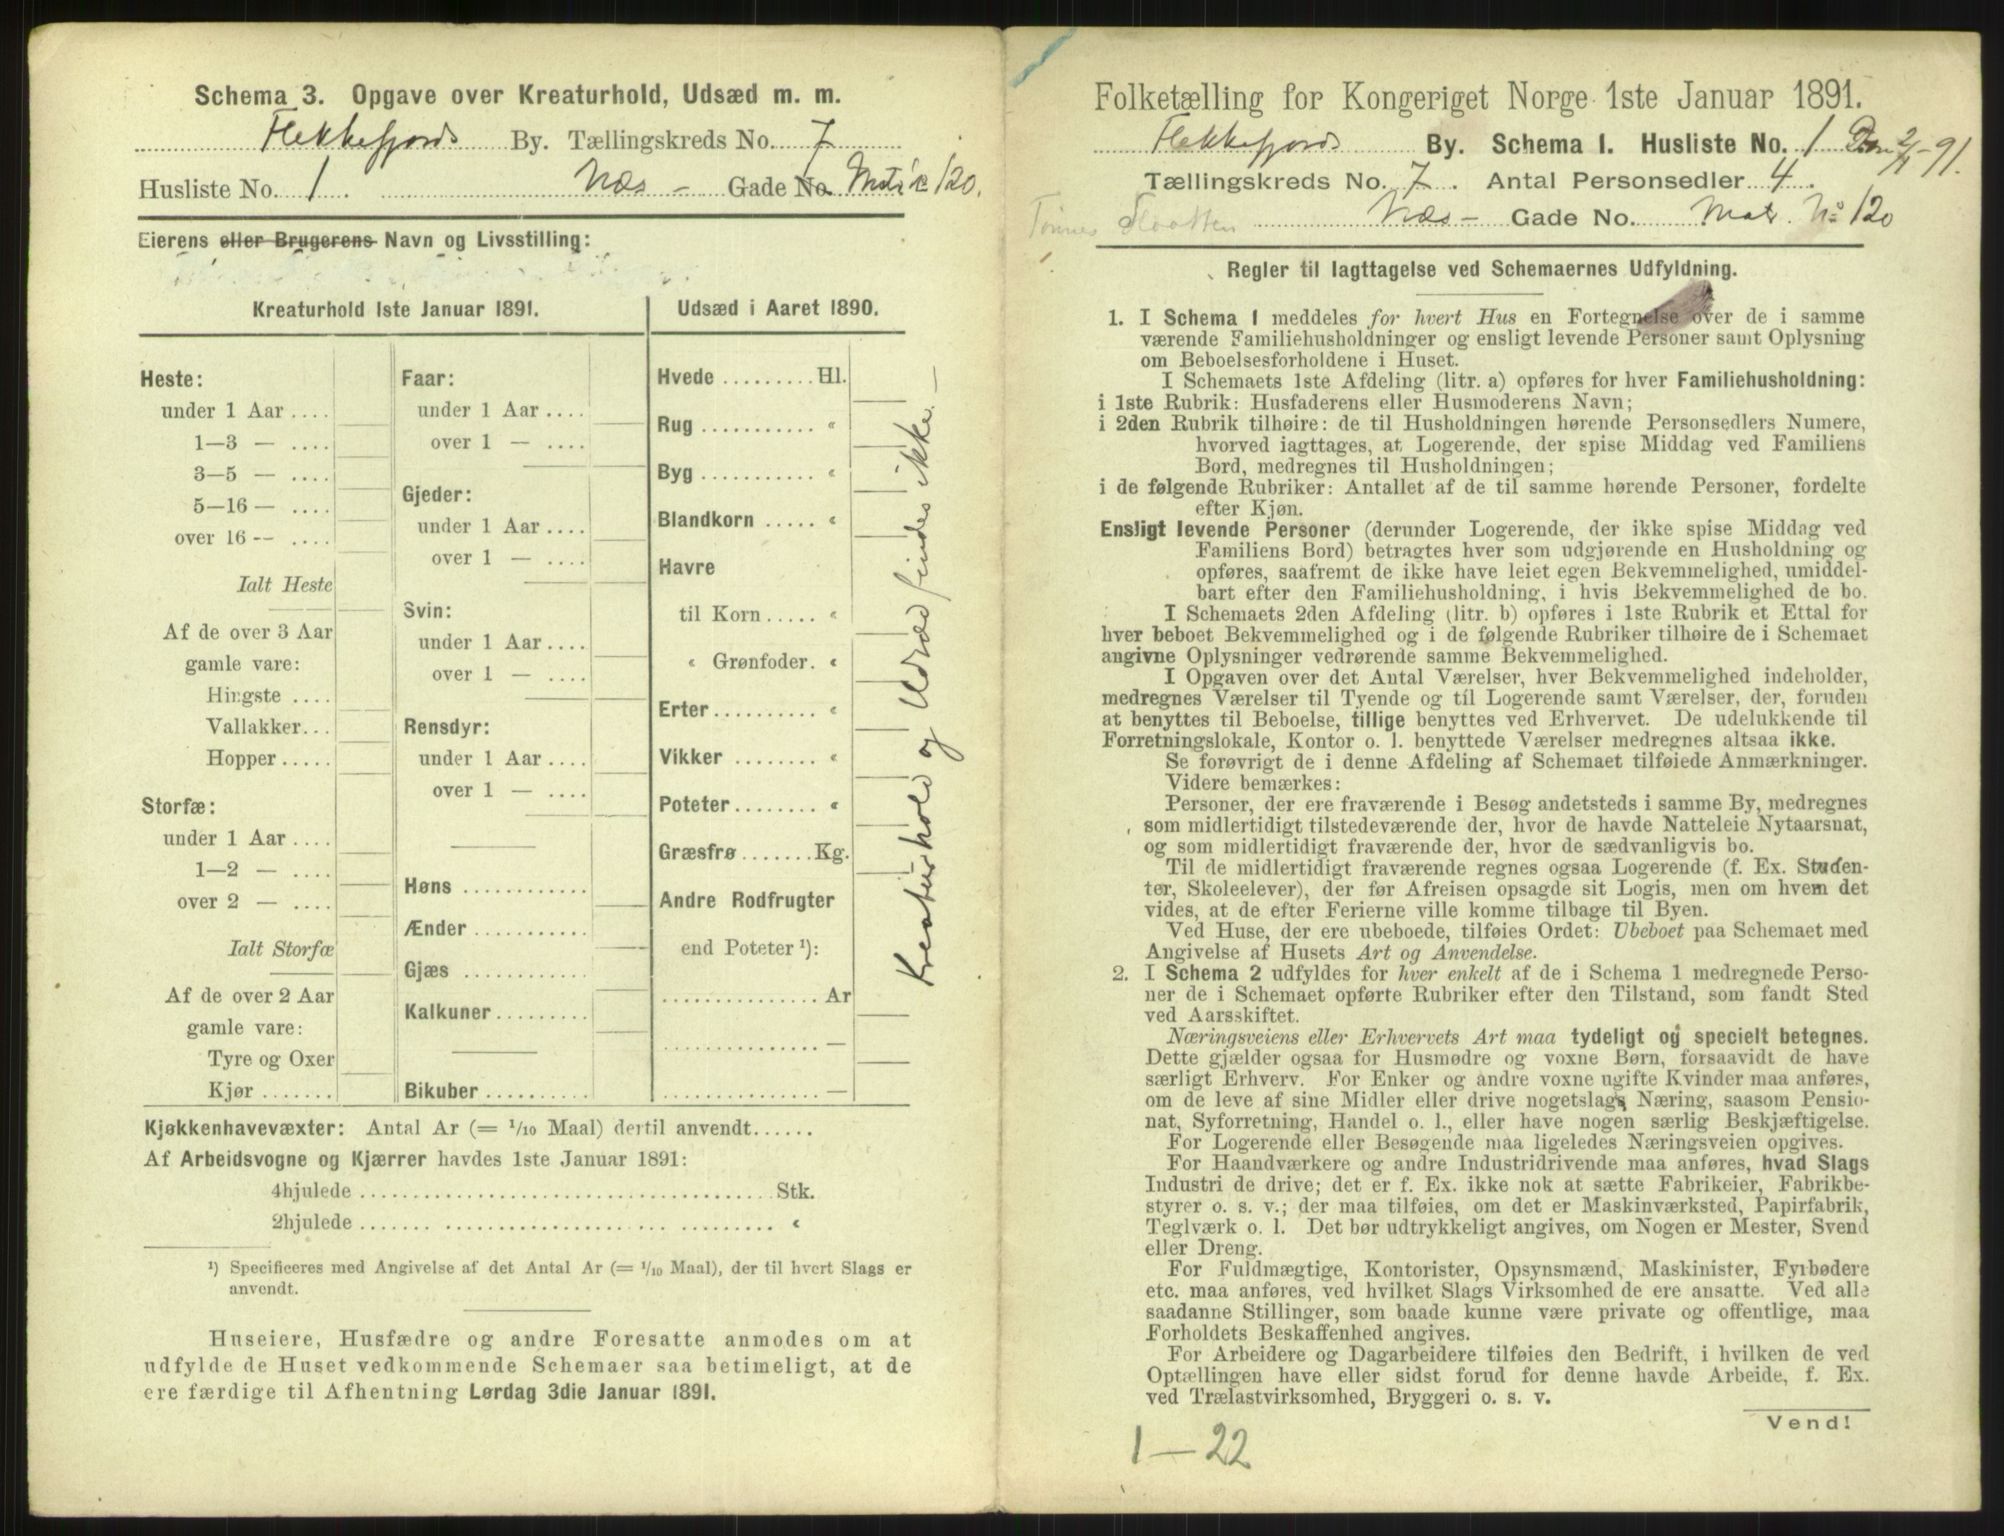 Schema 3. Opgave over Kreaturhold, Udsæd m. m.
Flekkefjords By. Tællingskreds No. 7
Husliste No. 1. Næs - Gade No. Matr № 120.
Eierens eller Brugerens Navn og Livsstilling:
Kreaturhold 1ste Januar 1891.
Heste:
under 1 Aar ....
1—3 — ....
3—5 — ....
5—16 — ....
over 16 -- ....
Ialt Heste
Af de over 3 Aar
gamle vare:
Hingste ....
Vallakker...
Hopper .....
Storfæ:
under 1 Aar ....
1—2 — ....
over 2 — ....
Ialt Storfæ
Af de over 2 Aar
gamle vare:
Tyre og Oxer
Kjør .......
Faar:
under 1 Aar ....
over 1 — ....
Gjeder:
under 1 Aar ....
over 1 — ....
Svin:
under 1 Aar ....
over 1 — ....
Rensdyr:
under 1 Aar ....
over 1 — ....
Høns ...........
Ænder ..........
Gjæs ...........
Kalkuner........
Bikuber.........
Udsæd i Aaret 1890.
Hvede ......... Hl.
Rug .......... «
Byg .......... «
Blandkorn ..... «
Havre
til Korn ..... «
« Grønfoder. «
Erter.......... «
Vikker ........ «
Poteter........ «
Græsfrø ....... Kg.
Andre Rodfrugter
end Poteter ¹):
............... Ar
............... —
............... —
Kreaturhold og Udsæd findes ikke. —
Kjøkkenhavevæxter: Antal Ar (= 1/10 Maal) dertil anvendt......
Af Arbeidsvogne og Kjærrer havdes 1ste Januar 1891:
4hjulede ........................................ Stk.
2hjulede ........................................ «
¹) Specificeres med Angivelse af det Antal Ar (= 1/10 Maal), der til hvert Slags er
anvendt.
Huseiere, Husfædre og andre Foresatte anmodes om at
udfylde de Huset vedkommende Schemaer saa betimeligt, at de
ere færdige til Afhentning Lørdag 3die Januar 1891.
Folketælling for Kongeriget Norge 1ste Januar 1891.
Flekkefjords By. Schema I. Husliste No. 1 Den 2/1 - 91.
Tællingskreds No. 7. Antal Personsedler 4.
Tønnes Næs - Gade No. Matr. № 120
Regler til Iagttagelse ved Schemaernes Udfyldning.
1. I Schema 1 meddeles for hvert Hus en Fortegnelse over de i samme
værende Familiehusholdninger og ensligt levende Personer samt Oplysning
om Beboelsesforholdene i Huset.
I Schemaets 1ste Afdeling (litr. a) opføres for hver Familiehusholdning:
i 1ste Rubrik: Husfaderens eller Husmoderens Navn;
i 2den Rubrik tilhøire: de til Husholdningen hørende Personsedlers Numere,
hvorved iagttages, at Logerende, der spise Middag ved Familiens
Bord, medregnes til Husholdningen;
i de følgende Rubriker: Antallet af de til samme hørende Personer, fordelte
efter Kjøn.
Ensligt levende Personer (derunder Logerende, der ikke spise Middag ved
Familiens Bord) betragtes hver som udgjørende en Husholdning og
opføres, saafremt de ikke have leiet egen Bekvemmelighed, umiddel-
bart efter den Familiehusholdning, i hvis Bekvemmelighed de bo.
I Schemaets 2den Afdeling (litr. b) opføres i 1ste Rubrik et Ettal for
hver beboet Bekvemmelighed og i de følgende Rubriker tilhøire de i Schemaet
angivne Oplysninger vedrørende samme Bekvemmelighed.
I Opgaven over det Antal Værelser, hver Bekvemmelighed indeholder,
medregnes Værelser til Tyende og til Logerende samt Værelser, der, foruden
at benyttes til Beboelse, tillige benyttes ved Erhvervet. De udelukkende til
Forretningslokale, Kontor o. l. benyttede Værelser medregnes altsaa ikke.
Se forøvrigt de i denne Afdeling af Schemaet tilføiede Anmærkninger.
Videre bemærkes:
Personer, der ere fraværende i Besøg andetsteds i samme By, medregnes
som midlertidigt tilstedeværende der, hvor de havde Natteleie Nytaarsnat,
og som midlertidigt fraværende der, hvor de sædvanligvis bo.
Til de midlertidigt fraværende regnes ogsaa Logerende (f. Ex. Studen-
ter, Skoleelever), der før Afreisen opsagde sit Logis, men om hvem det
vides, at de efter Ferierne ville komme tilbage til Byen.
Ved Huse, der ere ubeboede, tilføies Ordet: Ubeboet paa Schemaet med
Angivelse af Husets Art og Anvendelse.
2. I Schema 2 udfyldes for hver enkelt af de i Schema 1 medregnede Perso-
ner de i Schemaet opførte Rubriker efter den Tilstand, som fandt Sted
ved Aarsskiftet.
Næringsveiens eller Erhvervets Art maa tydeligt og specielt betegnes.
Dette gjælder ogsaa for Husmødre og voxne Børn, forsaavidt de have
særligt Erhverv. For Enker og andre voxne ugifte Kvinder maa anføres,
om de leve af sine Midler eller drive nogetslags Næring, saasom Pensio-
nat, Syforretning, Handel o. l., eller have nogen særlig Beskjæftigelse.
For Logerende eller Besøgende maa ligeledes Næringsveien opgives.
For Haandværkere og andre Industridrivende maa anføres, hvad Slags
Industri de drive; det er f. Ex. ikke nok at sætte Fabrikeier, Fabrikbe-
styrer o. s. v.; der maa tilføies, om det er Maskinværksted, Papirfabrik,
Teglværk o. l. Det bør udtrykkeligt angives, om Nogen er Mester, Svend
eller Dreng.
For Fuldmægtige, Kontorister, Opsynsmænd, Maskinister, Fyrbødere
etc. maa anføres, ved hvilket Slags Virksomhed de ere ansatte. Ved alle
saadanne Stillinger, som baade kunne være private og offentlige, maa
Forholdets Beskaffenhed angives.
For Arbeidere og Dagarbeidere tilføies den Bedrift, i hvilken de ved
Optællingen have eller sidst forud for denne havde Arbeide, f. Ex.
ved Trælastvirksomhed, Bryggeri o. s. v.
Vend!
1 — 22